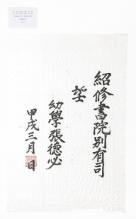 紹修書院別有司
望
幼學張德必
甲戌三月 日